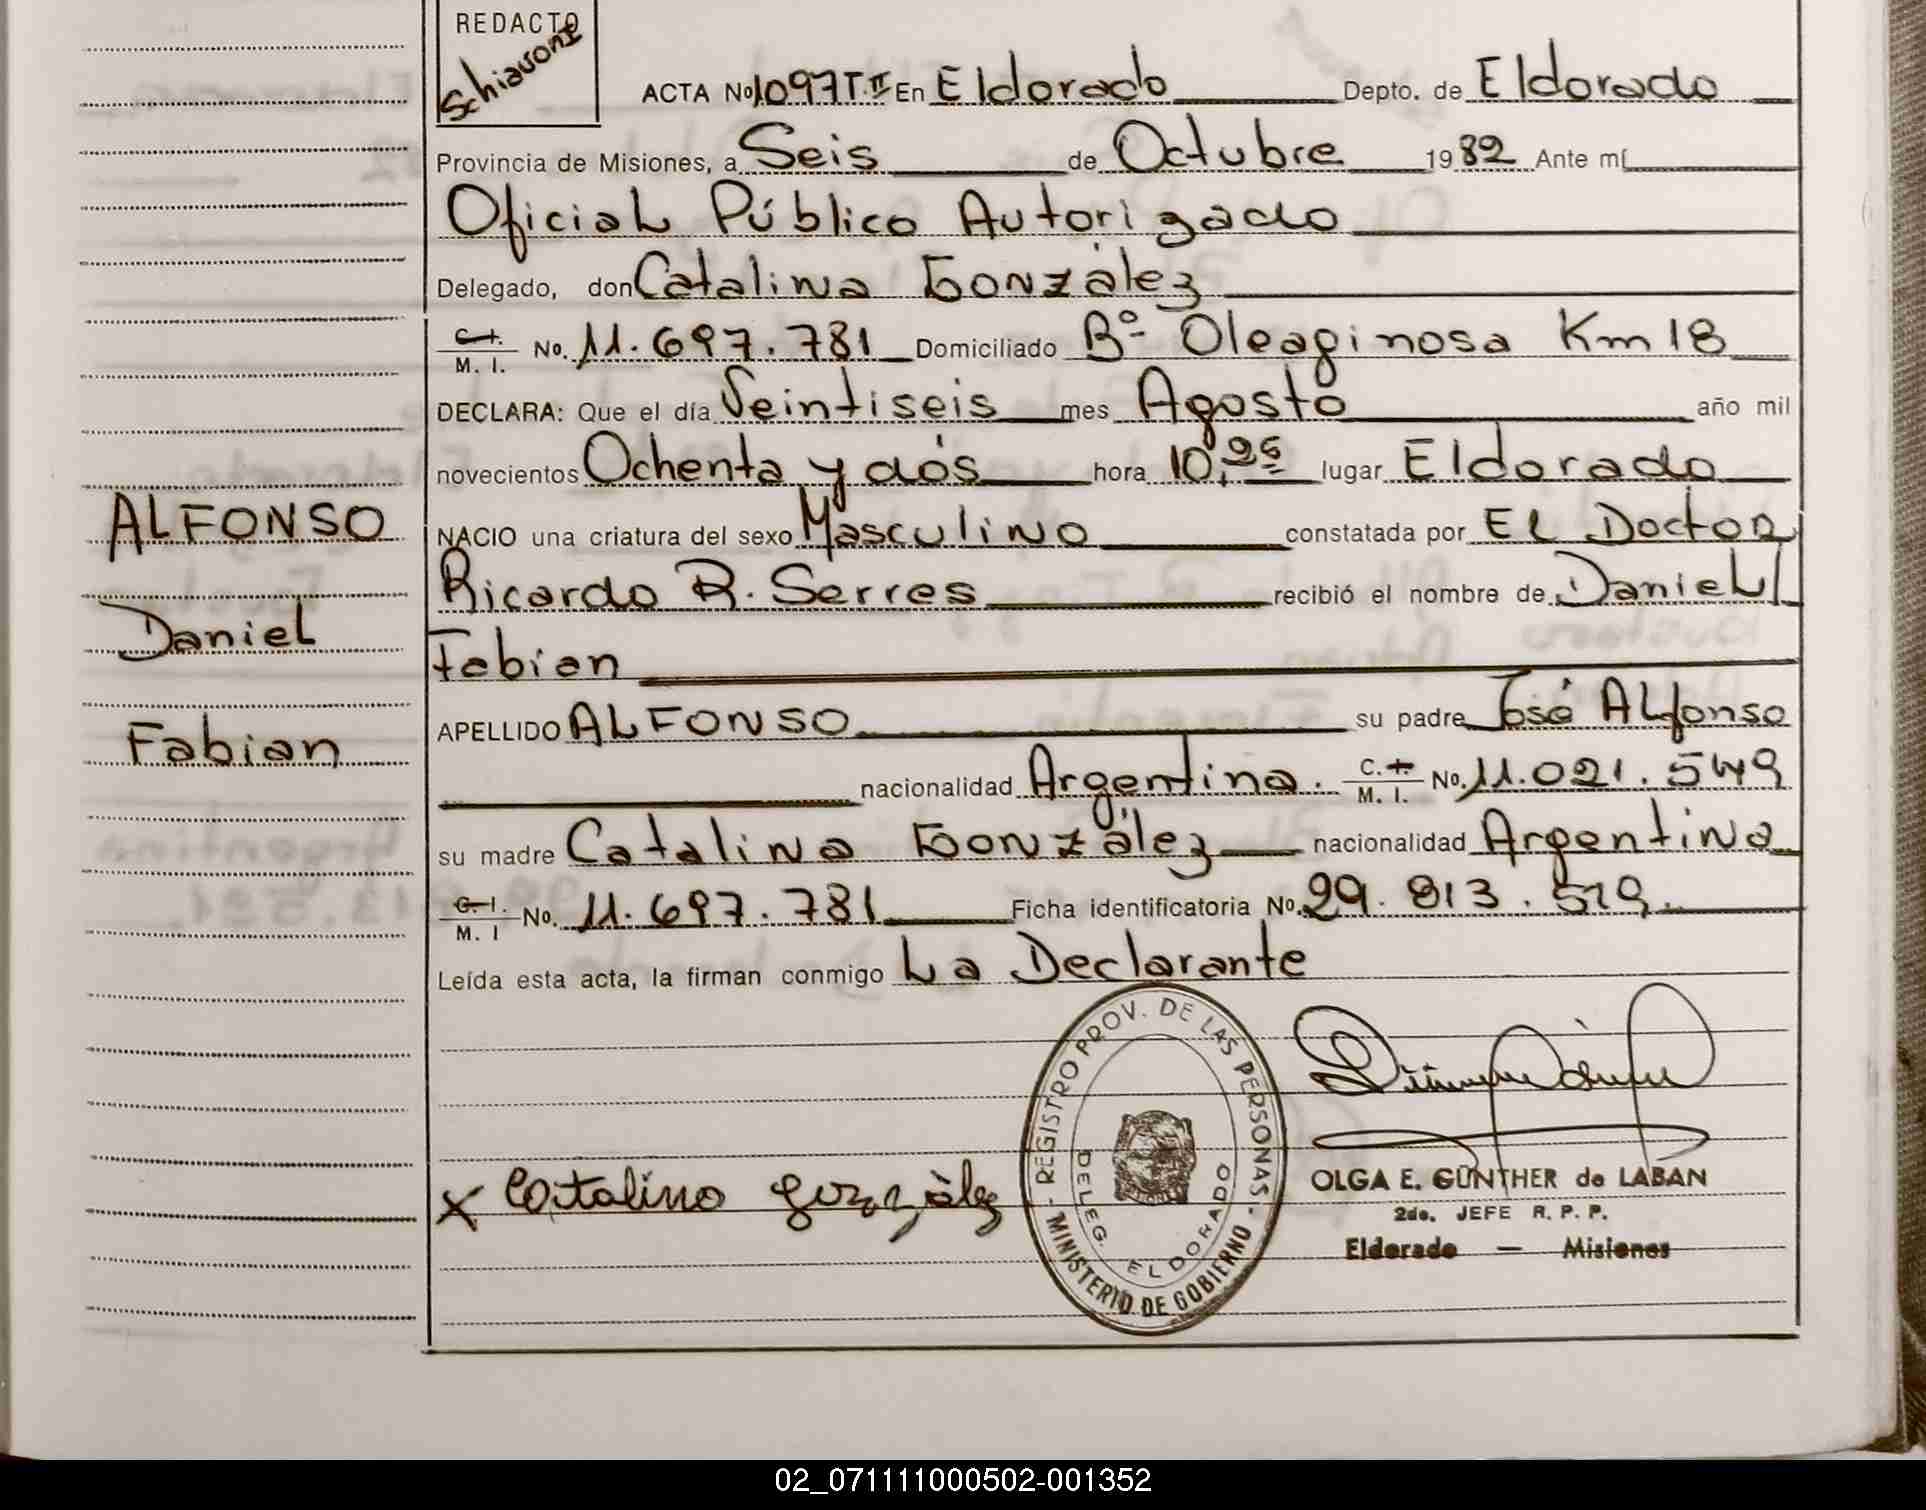 REDACTO
Schiavone
ACTA No 1.097 T. II En Eldorado Depto. de Eldorado
Provincia de Misiones, a Seis de Octubre 1982 Ante mí
Oficial Público Autorizado
Delegado, don Catalina González
C. I. / M. I. No. 11.697.781 Domiciliado Bº Oleaginosa Km 18
DECLARA: Que el día Veintiseis mes Agosto año mil
novecientos Ochenta y dós hora 10, lugar Eldorado
NACIO una criatura del sexo Masculino constatada por EL Doctor
Ricardo R. Serres recibió el nombre de Daniel
Fabian
APELLIDO ALFONSO su padre José Alfonso
nacionalidad Argentina. C. I. / M. I. No. 11.021.549
su madre Catalina González nacionalidad Argentina
C. I. / M. I No. 11.697.781 Ficha identificatoria No.
Leída esta acta, la firman conmigo La Declarante
ALFONSO
Daniel
Fabian
x Catalina González
REGISTRO PROV. DE LAS PERSONAS
MINISTERIO DE GOBIERNO
DELEG. ELDORADO
OLGA E. GÜNTHER de LABAN
2do. JEFE R. P. P.
Eldorado — Misiones
02_071111000502-001352